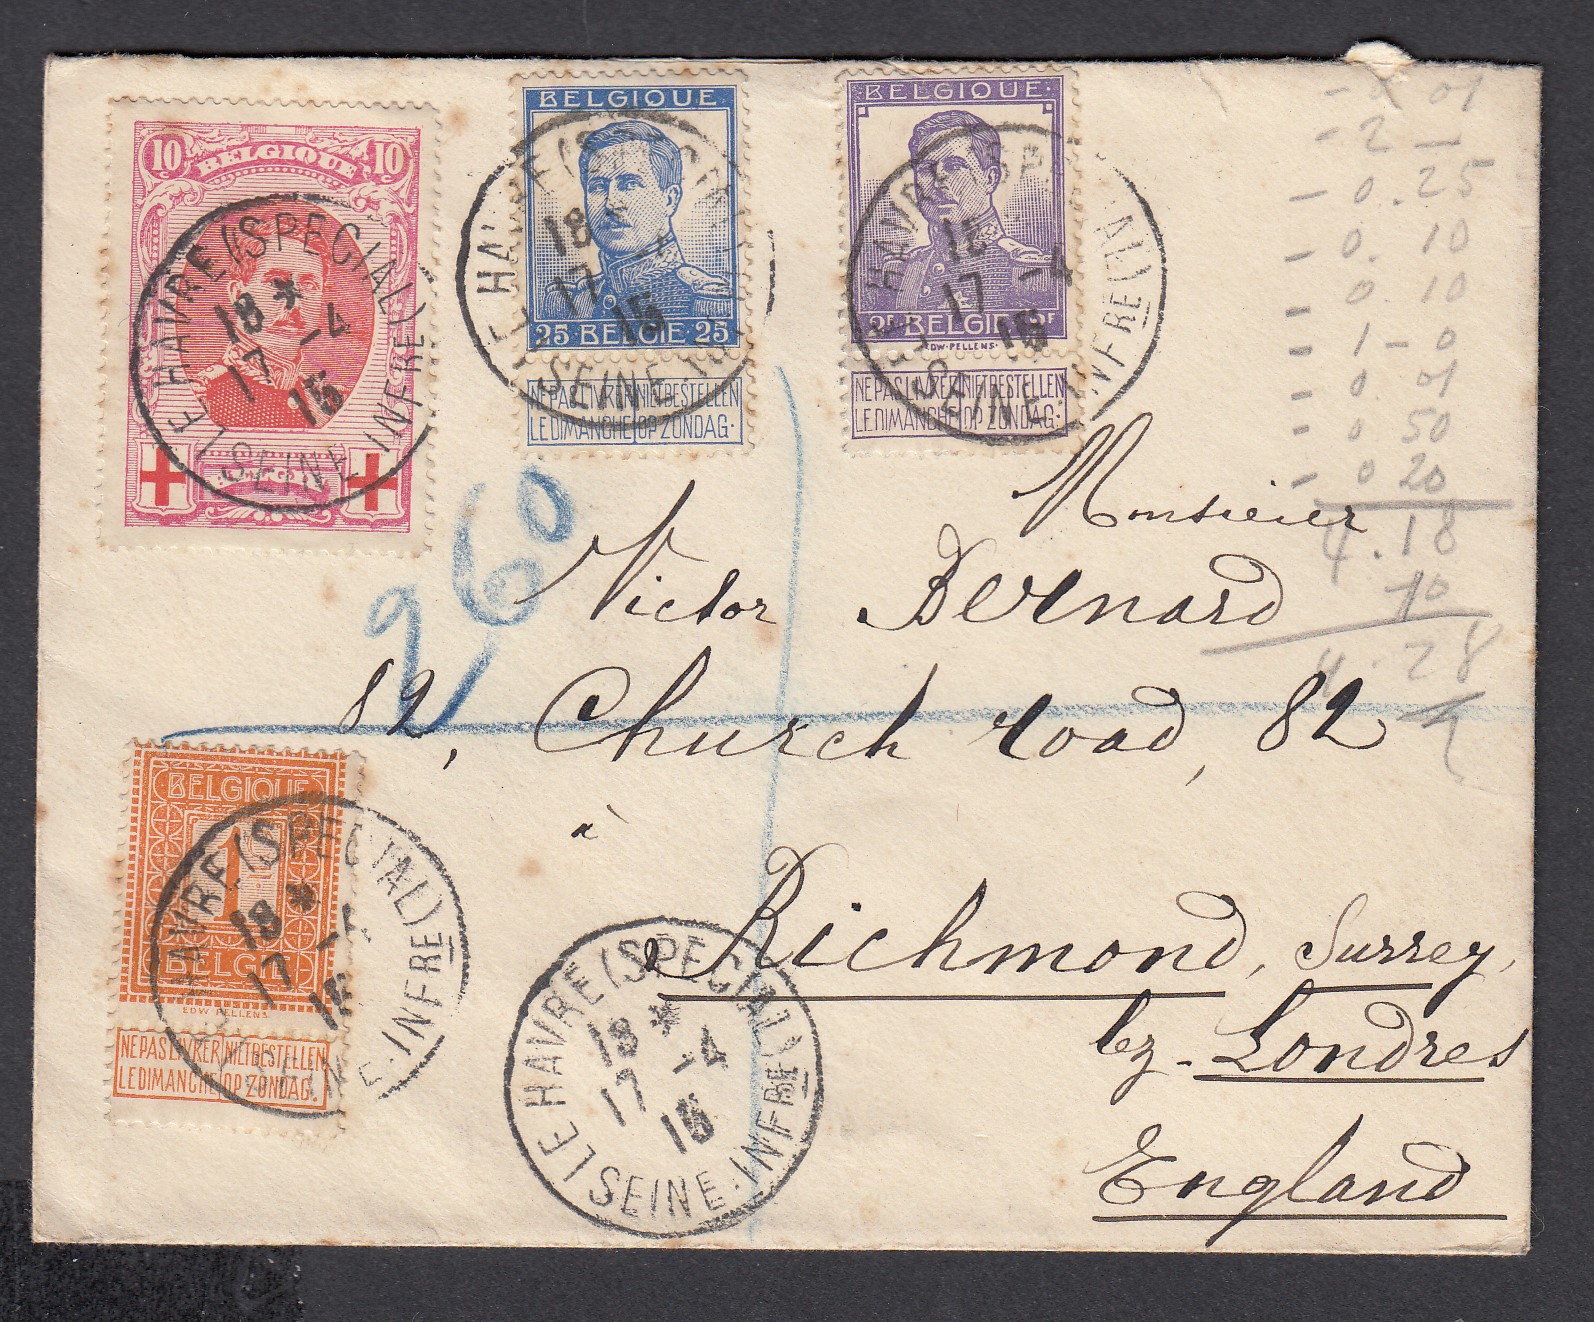 10 BELGIQUE 10
LE HAVRE (SPECIAL)
18 *
17 -4
15
SEINE INFRE
BELGIQUE
25 BELGIE 25
NE PAS LIVRER NIET BESTELLEN
LE DIMANCHE OP ZONDAG.
LE HAVRE (SPECIAL)
18
17
15
SEINE INFRE
·BELGIQUE·
2F BELGIE 2F
EDW·PELLENS·
NE PAS LIVRER NIET BESTELLEN
LE DIMANCHE OP ZONDAG.
LE HAVRE (SPECIAL)
18
17 -4
15
SEINE INFRE
01
- 2 -
- 0.25
0.10
- 0 10
- 1 - 0
- 0 01
- 0 50
- 0 20
4.18
10
4.28
260
Monsieur
Victor Bernard
82, Church road, 82
à
Richmond, Surrey,
lez-Londres
England
BELGIQUE
1
BELGIË
EDW PELLENS
NE PAS LIVRER NIET BESTELLEN
LE DIMANCHE OP ZONDAG.
LE HAVRE (SPECIAL)
18 *
17 -4
15
SEINE·INFRE
LE HAVRE (SPECIAL)
18 *
17 -4
15
SEINE·INFRE